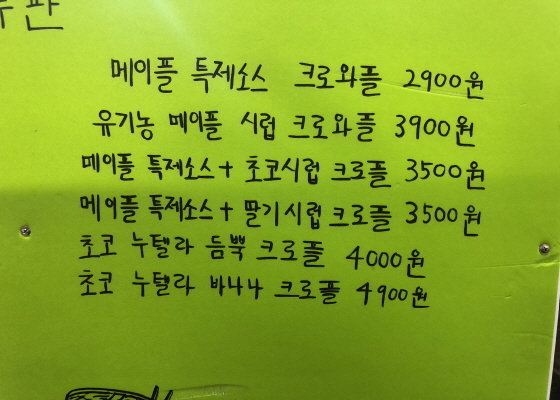 메이플 특제소스 크로와플 2900원
유기농 메이플 시럽 크로와플 3900원
메이플 특제소스+ 초코시럽 크로플 3500원
메이플 특제소스+ 딸기시럽 크로플 3500원
초코 누텔라 듬뿍 크로플 4000원
초코 누텔라 바나나 크로플 4900원